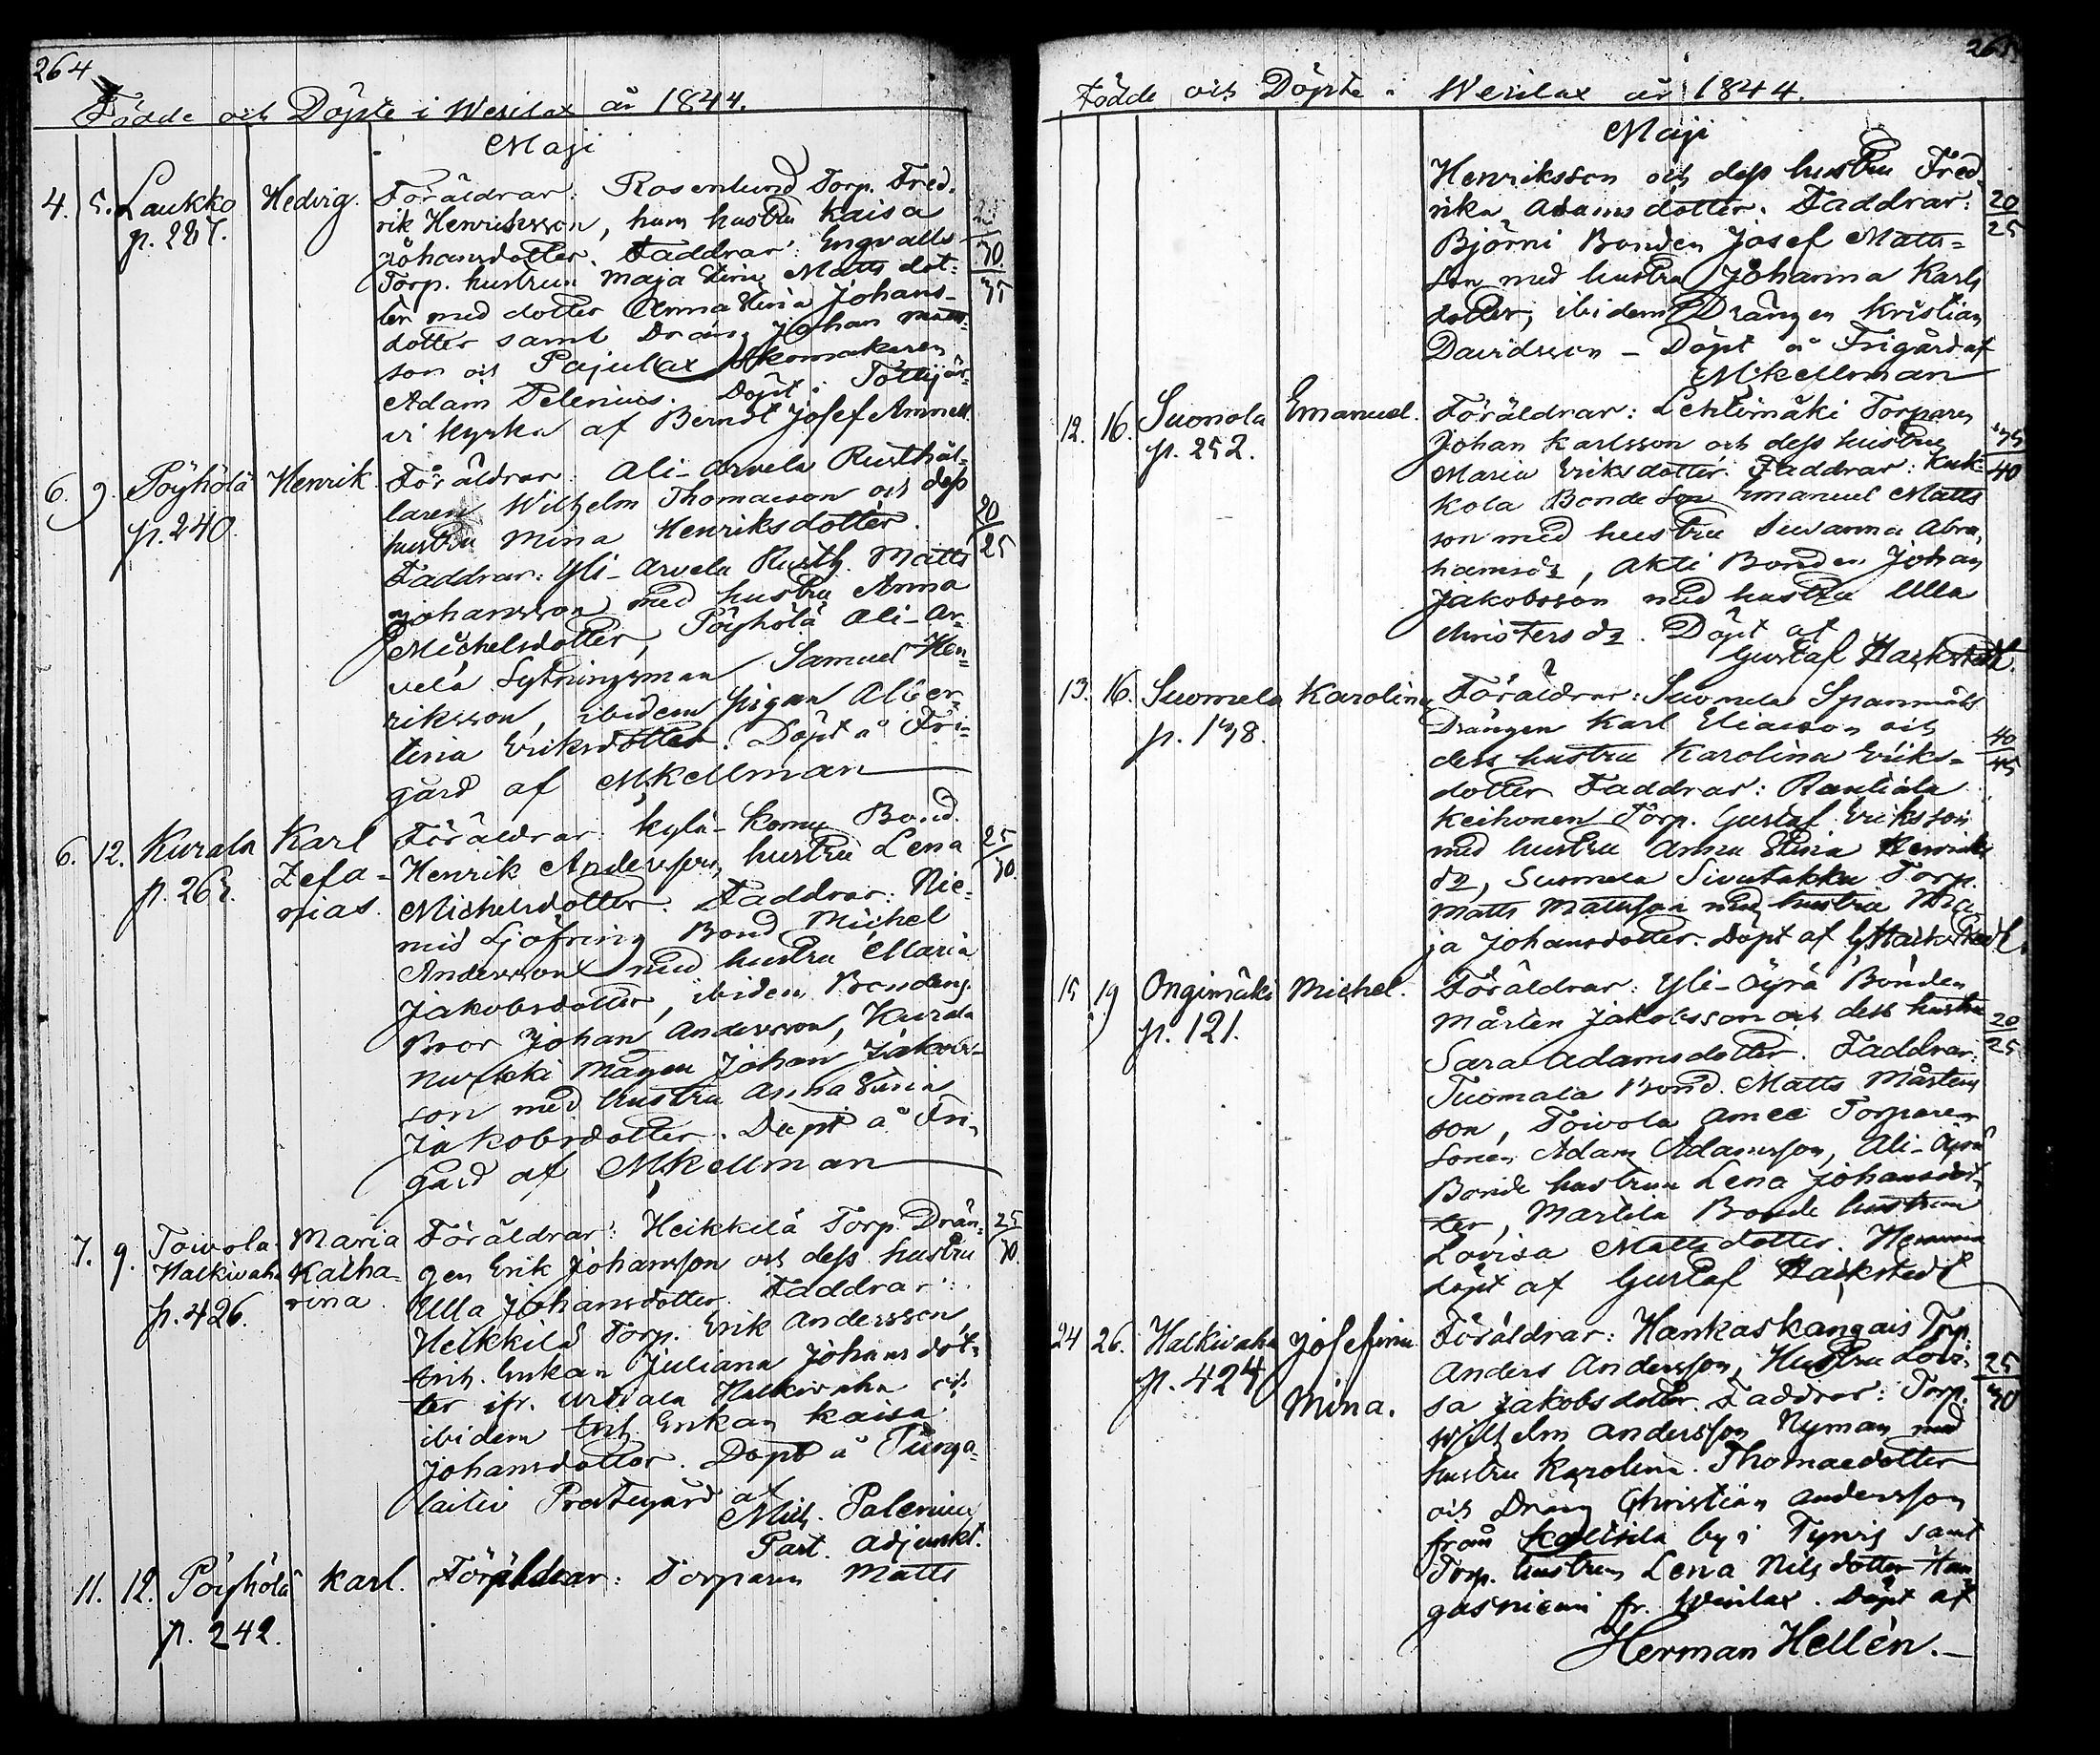 264
Födde och Döpte i Wesilax år 1844.
Maji
4. 5. Laukko Hedvig. Föräldrar: Rosenlund Torp. Fred-
p. 227. rik Henriksson, hans hustru Kaisa
Johansdotter. Faddrar: Engvalls 30
Torp. hustrun Maja Stina Matts dot- 35
ter med dotter Anna Stina Johans-
dotter samt Dräng Johan Matts-
son och Pajulax Skomakaren
Adam Pelenius. Döpt i Tottijär-
vi kyrka af Berndt Josef Ammell.
6. 9. Pöyhölä Henrik. Föräldrar: Ali-Arvela Rusthål-
p. 240. laren Wilhelm Thomasson och dess
hustru Mina Henriksdotter. 20
Faddrar: Yli-Arvela Rusth. Matts 25
Johansson med hustru Anna
Michelsdotter, Pöyhölä Ali-Ar-
vela Sytningsman Samuel Hen-
riksson, ibidem pigan Alber-
tina Eriksdotter. Döpt å Fri-
gård af M. Kellman
6. 12. Kurala Karl Föräldrar: Kylä-Komu Bond. 25
p. 262. Zefa- Henrik Andersson, hustru Lena 30.
nias. Michelsdotter. Faddrar: Nie-
mid Sjöfring Bond. Michel
Andersson med hustru Maria
Jakobsdotter, ibidem Bondens
Bror Johan Andersson, Kurala
Nurkki Mågen Johan Jakobs-
son med hustru Anna Stina
Jakobsdotter. Döpt å Fri-
gård af M. Kellman
7. 9. Toivola Maria Föräldrar: Heikkilä Torp. Drän- 25
Halkivaha Katha- gen Erik Johansson och dess hustru 30.
p. 426. rina. Ulla Johansdotter. Faddrar:
Heikkilä Torp. Erik Andersson,
Inh. Enkan Juliana Johans dot-
ter ifr. Urdiala Halkivaha och
ibidem Inh. Enkan Kaisa
Johansdotter. Döpt å Punga-
laitio Prestegård af
Mich. Palenius
Past. Adjunkt.
11. 12. Pöyhölä Karl. Föräldrar: Torparen Matts
p. 242.
265
Födde och Döpte i Wesilax år 1844.
Maji
Henriksson och dess hustru Fred-
rika Adamsdotter. Faddrar: 20
Björni Bonden Josef Matts- 25
son med hustru Johanna Karls
dotter, ibidem Drängen Kristian
Davidsson – Döpt å Frigård af
M. Kellman
12. 16. Suonola Emanuel. Föräldrar: Lehtimäki Torparen
p. 252. Johan Karlsson och dess hustru 35
Maria Eriksdotter. Faddrar: Kuk- 40
kola Bonde Son Emanuel Matts
son med hustru Susanna Abra-
hamsdr, Akti Bonden Johan
Jakobsson med hustru Ulla
Christersdr. Döpt af
Gustaf Hackstedt.
13. 16. Suomela Karolina Föräldrar: Suomela Spannmåls
p. 198. Drängen Karl Eliasson och 40
dess hustru Karolina Eriks- 45
dotter Faddrar: Rautiala
Keihonen Torp. Gustaf Eriksson
med hustru Anna Stina Henriks
dr, Suomela Sivutakku Torp.
Matts Mattsson med hustru Ma-
ja Johansdotter. Döpt af G. Hackstedt.
15 19 Ongimäki Michel. Föräldrar: Yli-Äyrä Bonden
p. 121. Mårten Jakobsson och dess hustru 20
Sara Adamsdotter. Faddrar: 25
Tuomala Bond. Matts Mårtens
son, Toivola Torparen
Sonen Adam Adamsson, Ali-Äyrä
Bonde hustrun Lena Johansdot-
ter, Martila Bonde hustrun
Lovisa Mattsdotter. Hemma
döpt af Gustaf Hackstedt
24 26. Halkivaha Josefina Föräldrar: Hankaskangais Torp.
p. 424. Mina. Anders Andersson, Hustru Lovi- 25
sa Jakobsdotter. Faddrar: Torp. 30
Wilhelm Andersson Nyman med
hustru Karolina Thomaedotter
och Dräng Christian Andersson
från by i Tyrvis samt
Torp. hustrun Lena Nils dotter Han-
gasniemi fr. Wesilax. Döpt af
Herman Hellén.